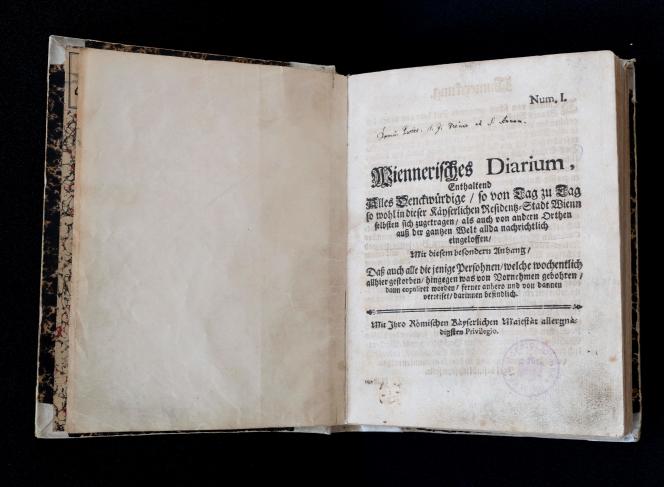 Num. I.
Wiennerisches Diarium,
Enthaltend
Alles Denckwürdige / so von Tag zu Tag
so wohl in dieser Käyserlichen Residentz-Stadt Wienn
selbsten sich zugetragen / als auch von andern Orthen
auß der gantzen Welt allda nachrichtlich
eingeloffen /
Mit diesem besondern Anhang /
Daß auch alle die jenige Persohnen / welche wochentlich
allhier gestorben / hingegen was von Vornehmen gebohren /
dann copuliret worden / ferner anhero und von dannen
verreiset / darinnen befindlich.
Mit Ihro Römischen Käyserlichen Majestät allergnä-
digsten Privilegio.